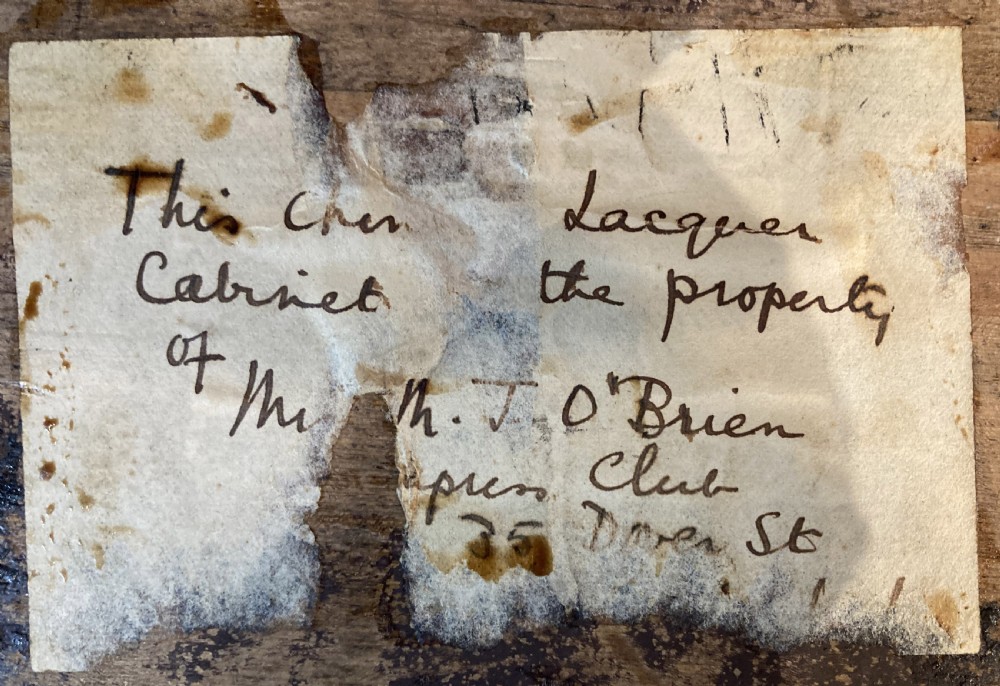 This Lacquer
Cabinet the property
of
Mr M. J. O'Brien
press Club
35 Dover St